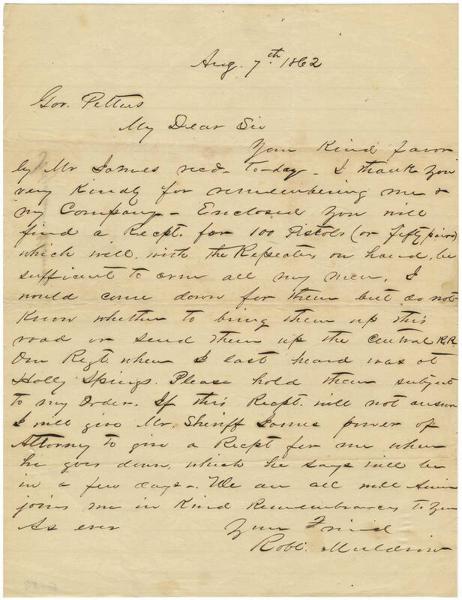 Aug. 7th 1862
Gov. Pettus
My Dear Sir
Your Kind favor
by Mr James recd. to-day. I thank you
very Kindly for remembering me &
my Company - Enclosed you will
find a Recpt. for 100 Pistols (or fifty pairs)
which will, with the Repeaters on hand, be
sufficient to arm all my men. I
would come down for them but do not
Know whether to bring them up this
road or send them up the Central R.R.
Our Regt when I last heard was at
Holly Springs. Please hold them subject
to my Order. If this Recpt. will not answer
I will give Mr. Sheriff James power of
Attorney to give a Recpt for me when
he goes down, which he says will be
in a few days - We are all well
joins me in Kind Remembrances to you
As ever Your Friend
Robt. Muldrow